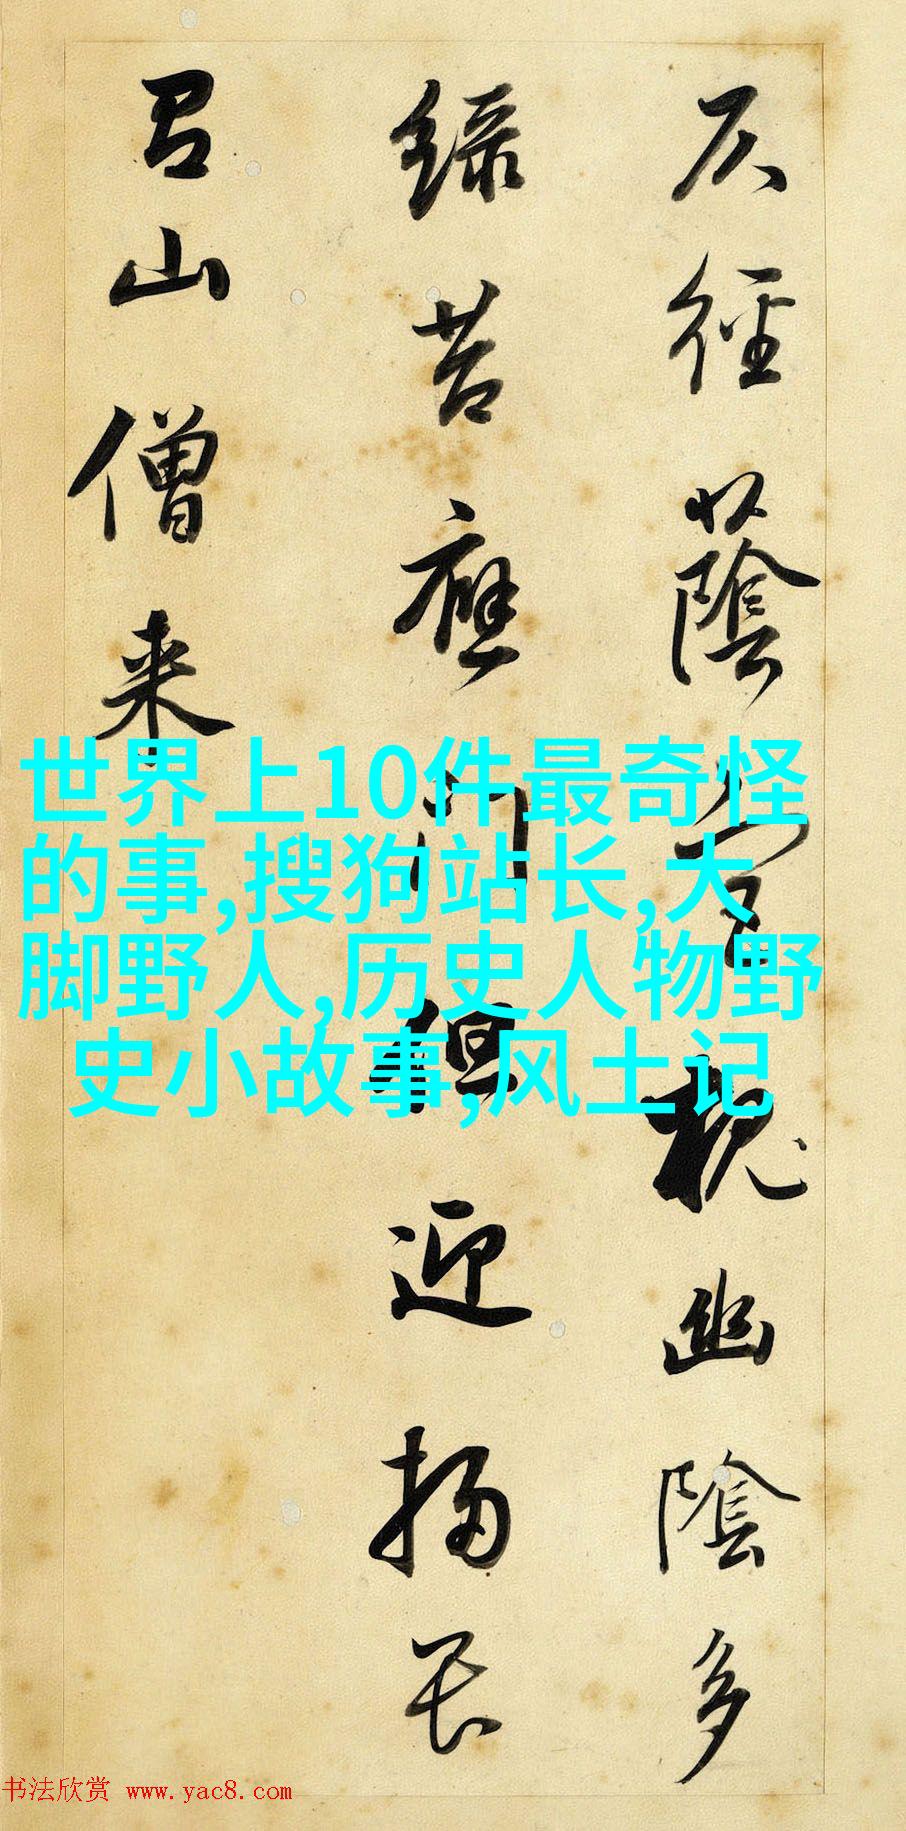 仄徑蔭宮槐幽陰多
綠苔應門但迎掃
山僧来
世界上10件最奇怪
的事,搜狗站长,大
脚野人,历史人物野
史小故事,风土记
书法欣赏 www.yac8.com